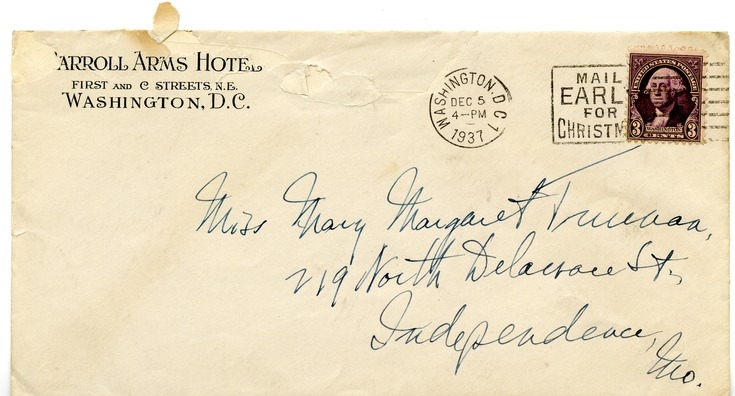 CARROLL ARMS HOTEL
FIRST AND C STREETS, N.E.
WASHINGTON, D.C.
WASHINGTON, D.C. 1
DEC 5
4-PM
1937
MAIL
EARLY
FOR
CHRISTM
UNITED STATES POSTAGE
WASHINGTON
3 CENTS 3
Miss Mary Margaret Truman,
219 North Delaware St,
Independence,
Mo.